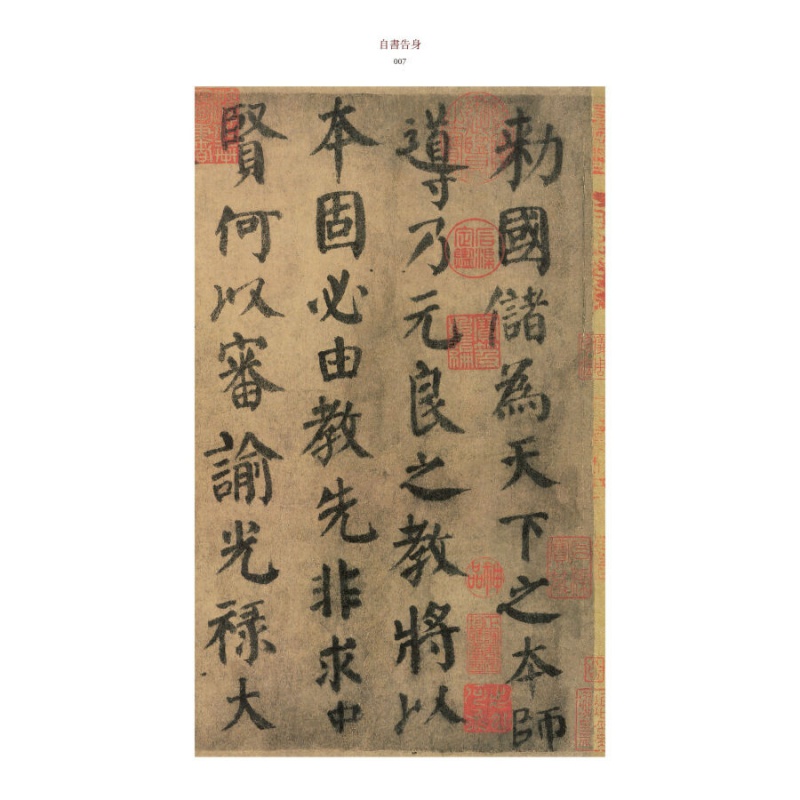 自書告身
007
勅國儲為天下之本師
導乃元良之教將以
本固必由教先非求中
賢何以審諭光祿大